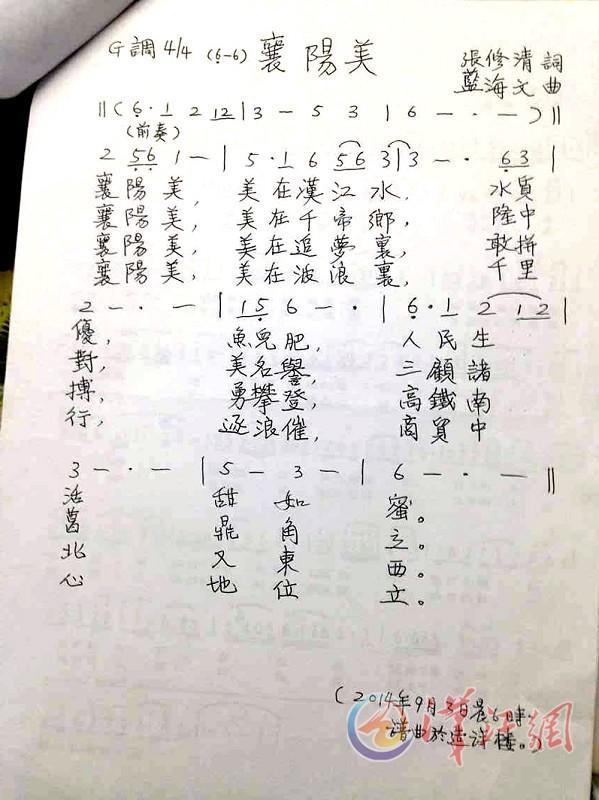 G調 4/4 (6-6) 襄陽美
張修清 詞
藍海文 曲
‖( 6· 1 2 12 | 3 — 5 3 | 6 — · — ) ‖
(前奏)
2 56 1 — | 5 · 1 6 56 3 | 3 — · 63 |
襄陽美, 美在漢江水, 水質
襄陽美, 美在千帝鄉, 隆中
襄陽美, 美在追夢裏, 敢拼
襄陽美, 美在波浪裏, 千里
2 — · — | 15 6 — · | 6 · 1 2 12 |
優, 魚兒肥, 人民生
對, 美名譽, 三顧諸
搏, 勇攀登, 高鐵南
行, 逐浪催, 商貿中
3 — · — | 5 — 3 — | 6 — · — ‖
活 甜如 蜜。
葛 鼎角 立。
北 又東 西。
心 地位 立。
(2014年9月3日晨6時
譜曲於 樓。)